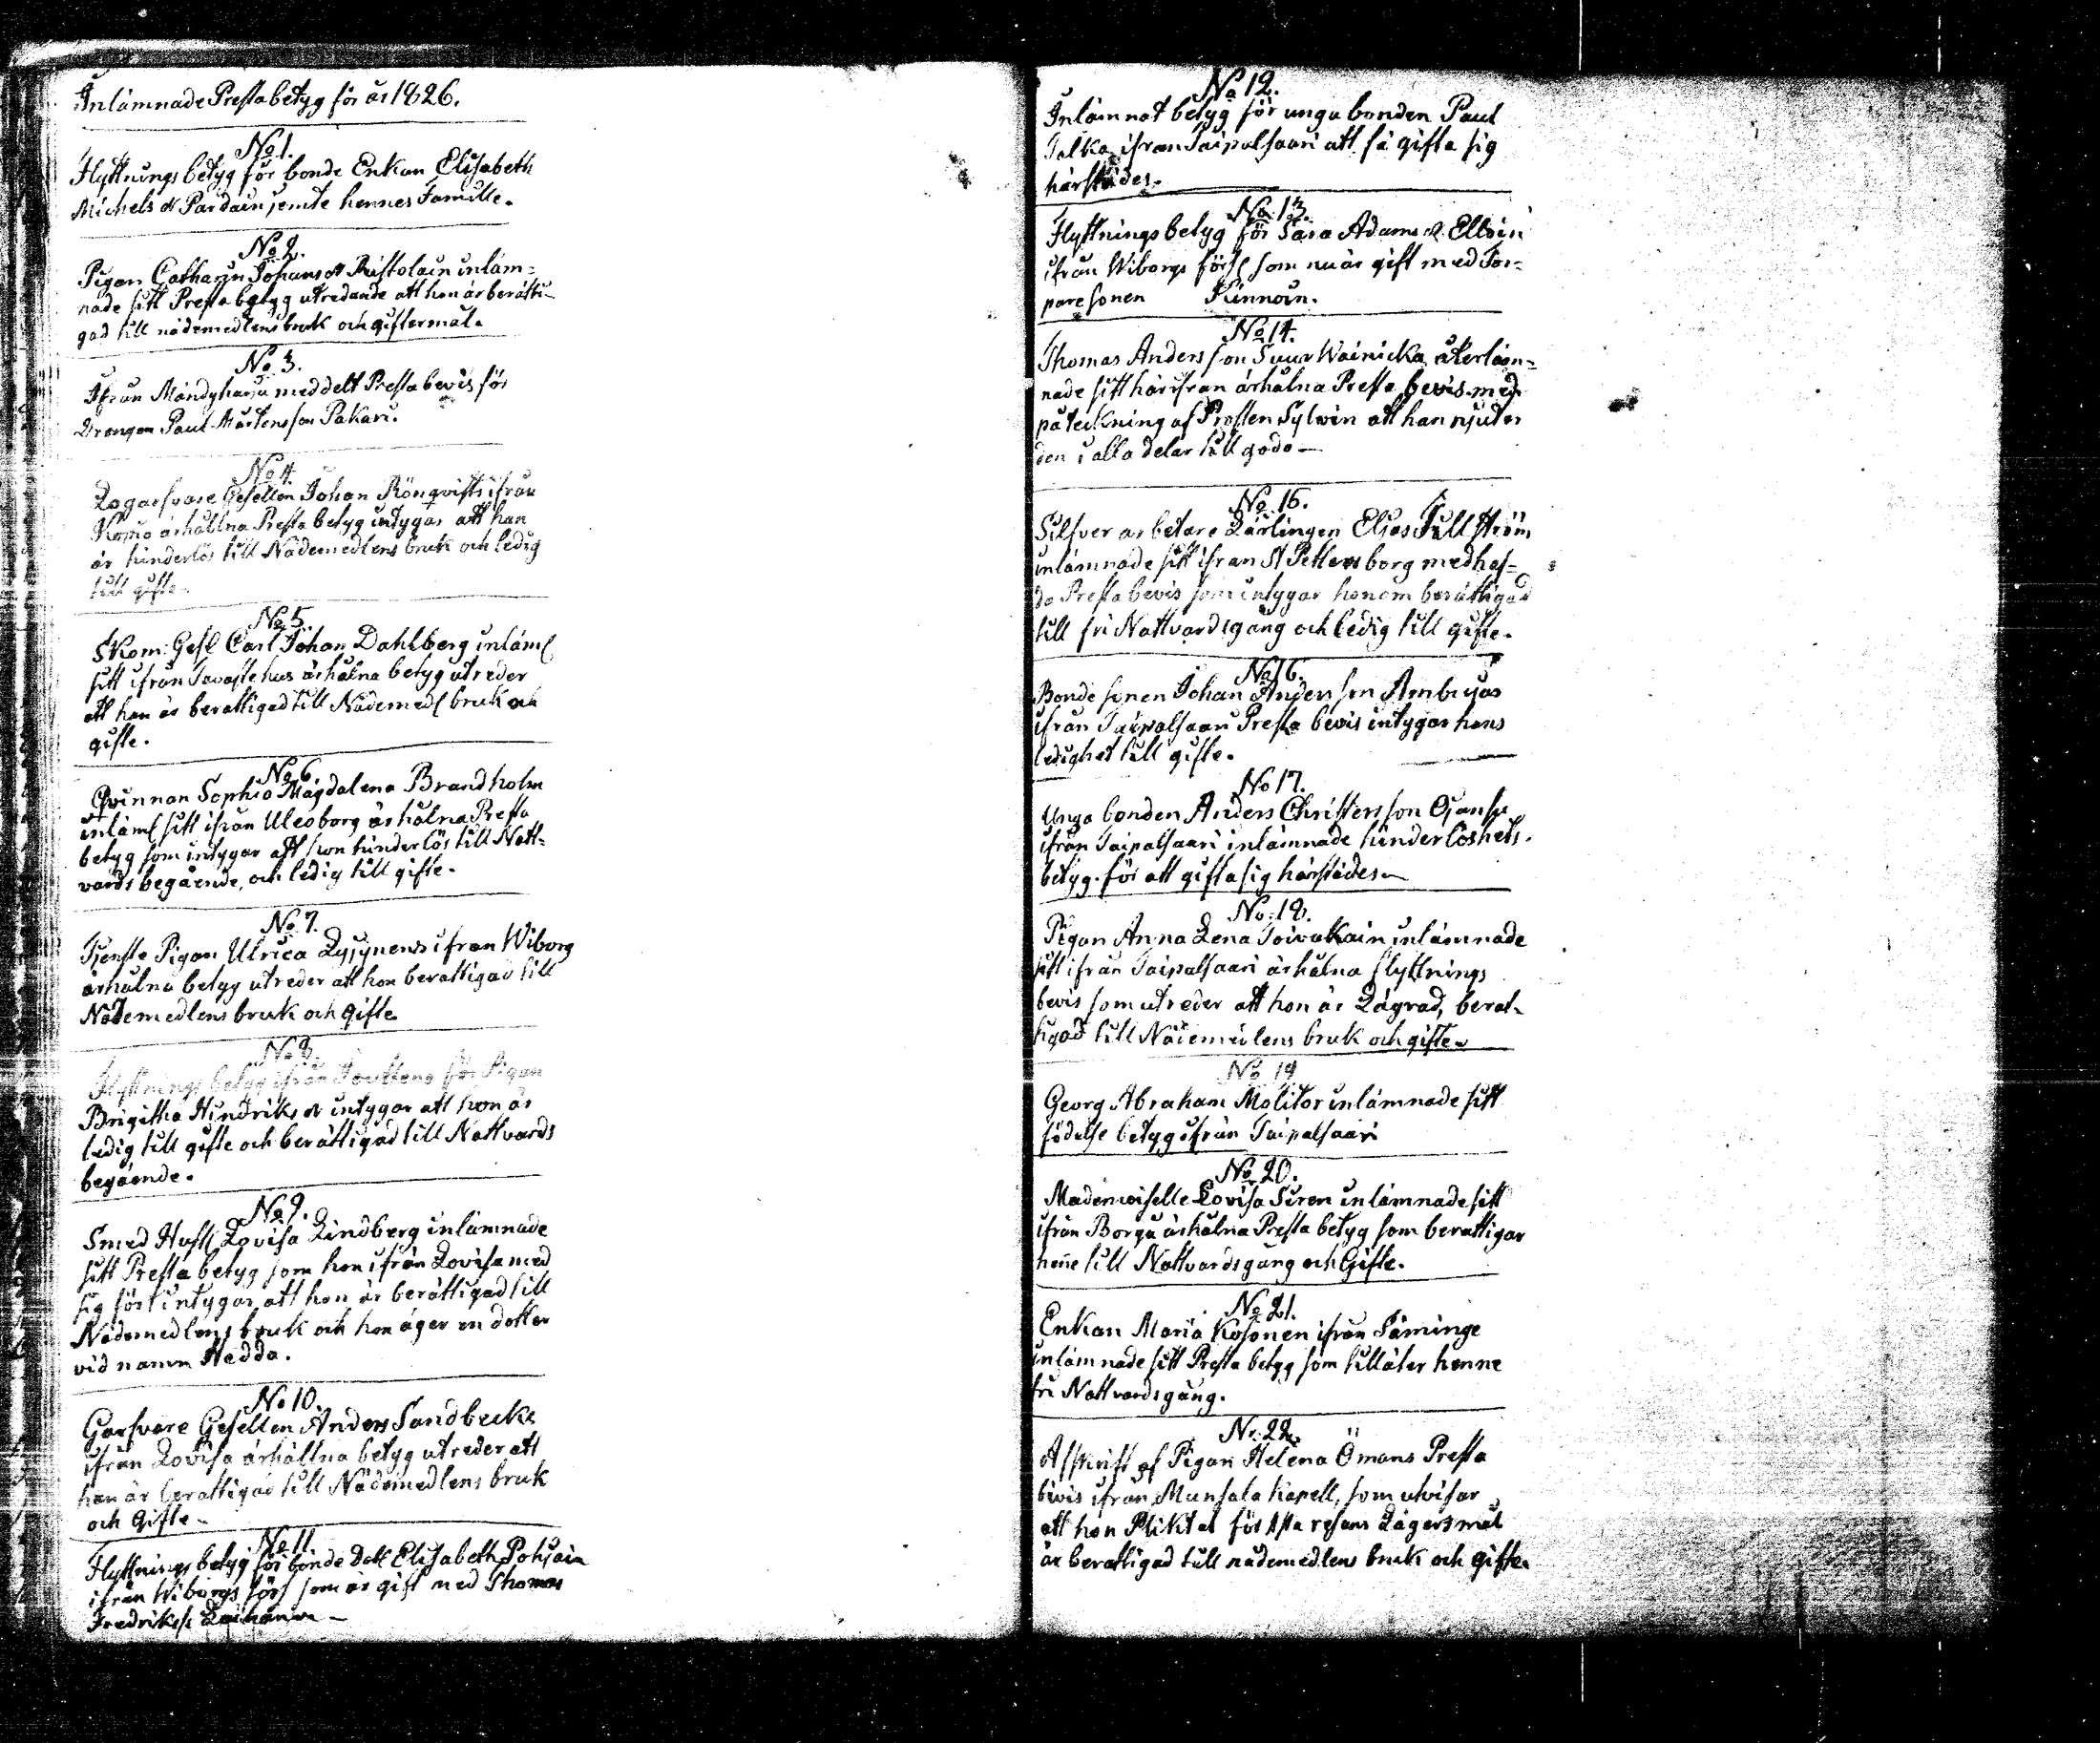 Inlämnade Prestabetyg för år 1826.
No 1.
Flyttnings betyg för bonde Enkan Elisabeth
Michels dr Pardain jemte hennes Famille.
No 2.
Pigan Catharin Johans dr Ristolain inläm-
nade sitt Presta betyg utredande att hon är berätti-
gad till nådemedlens bruk och giftermål.
No 3.
Ifrån Mändyharju meddelt Presta bevis för
Drengen Paul Mårtensson Pakari.
No 4.
Logarfvare Gesellen Johan Rönqvists ifrån
århållna Presta betyg intygar att han
är hinderlös till Nådemedlens bruk och ledig
till gifte.
No 5.
Skom: Gesl Carl Johan Dahlberg inläml
sitt ifrån Tavastehus århålna betyg utreder
att han är berattigad till Nådemedl bruk och
gifte.
No 6.
Qvinnan Sophia Magdalena Brandholm
inläml sitt ifrån Uleoborg århålna Presta
betyg som intygar att hon hinderlös till Natt-
vards begående, och ledig till gifte.
No 7.
Tjenste Pigan Ulrica Lyijynens ifran Wiborg
århålna betyg utreder att hon berattigad till
Nådemedlens bruk och Gifte
No 8.
Flyttnings betyg ifrån Joutseno för Pigan
Brigitha Hindriks dr intygar att hon är
ledig till gifte och berättigad till Nattvards
begående.
No 9.
Smed Hust Lovisa Lindberg inlämnade
sitt Presta betyg som hon ifrån Lovisa med
sig fört intygar att hon är berättigad till
Nådemedlens bruk och hon äger en dotter
vid namn Hedda.
No 10.
Garfvare Gesellen Anders Sandbecks
ifrån Lovisa århållna betyg utreder att
han är berattigad till Nådemedlens bruk
och Gifte
No 11.
Flyttnings betyg för bonde Dott Elisabeth Pohjain
ifrån Wiborgs förs som är gift med Thomas
Fredrikss
No 12.
Inlämnat betyg för unga bonden Paul
Talka ifran Taipalsaari att få gifta sig
härstädes.
No 13.
Flyttnings betyg för Sara Adams dr Ellvin
ifrån Wiborgs förs som nu är gift med Tor-
pare sonen Kinnoin.
No 14.
Thomas Andersson Suur Wainicka återläm-
nade sitt härifran århålna Presta bevis med
påteckning af Prosten Sylvin att han njuter
den i alla delar till godo
No 15.
Silfver arbetare Lärlingen Elias Fullström
inlämnade sitt ifran St Pettersborg medhaf-
da Presta bevis som intygar honom berättigad
till fri Nattvardsgang och ledig till gifte.
No 16.
Bonde sonen Johan Andersson Ambujas
ifrån Taipalsaari Presta bevis intygar hans
ledighet till gifte.
No 17.
Unga bonden Anders Christersson Ojansu
ifrån Taipalsaari inlämnade hinderlöshets-
betyg för att gifta sig härstädes
No. 18.
Pigan Anna Lena Toivakain inlämnade
sitt ifrån Taipalsaari århålna flyttnings
bevis som utreder att hon är Lägrad, berat-
tigad till Nådemedlens bruk och gifte
No 19
Georg Abraham Molitor inlämnade sitt
födelse betyg ifrån Taipalsaari
No 20.
Mademoiselle Lovisa Siren inlämnade sitt
ifrån Borgå århålna Presta betyg som berattigar
henne till Nattvardsgång och Gifte.
No 21.
Enkan Maria Kosonen ifrån Säminge
inlämnade sitt Presta betyg som tillåter henne
fri Nattvardsgång.
No. 22.
Afskrift af Pigan Helena Ömans Presta
bevis ifran Munsala Kapell, som utvisar
att hon Pliktat för 1sta resans Lägersmål
är berattigad till nådemedlens bruk och gifte.